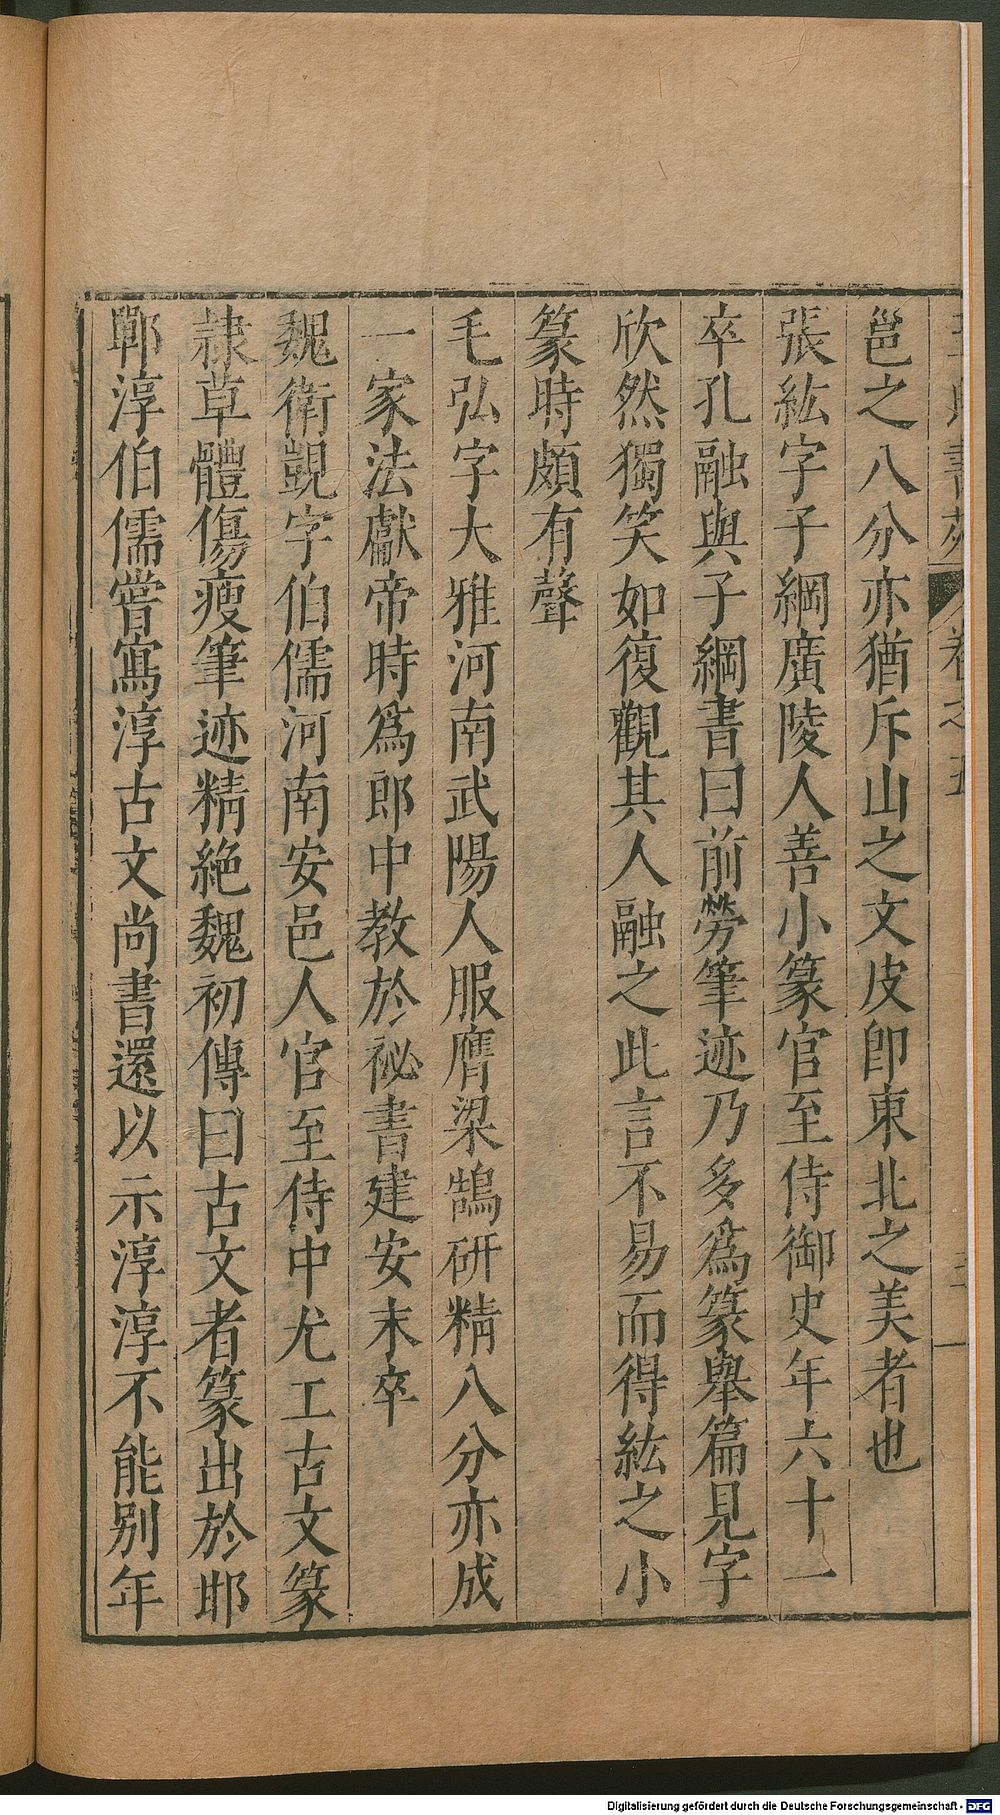 王氏書苑 卷之五
邕之八分亦猶斥山之文皮即東北之美者也
張紘字子綱廣陵人善小篆官至侍御史年六十一
卒孔融與子綱書曰前勞筆迹乃多爲篆舉篇見字
欣然獨笑如復觀其人融之此言不易而得紘之小
篆時頗有聲
毛弘字大雅河南武陽人服膺梁鵠研精八分亦成
一家法獻帝時爲郎中教於祕書建安末卒
魏衛覬字伯儒河南安邑人官至侍中尤工古文篆
隷草體傷瘦筆迹精絶魏初傳曰古文者篆出於邯
鄲淳伯儒嘗寫淳古文尚書還以示淳淳不能別年
Digitalisierung gefördert durch die Deutsche Forschungsgemeinschaft - DFG